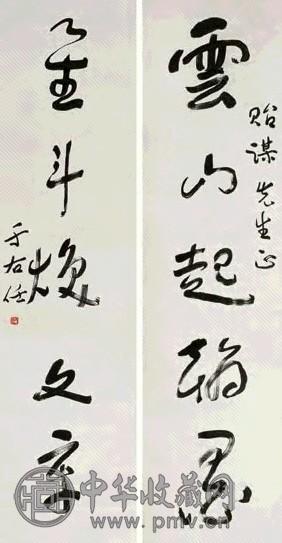 貽謀先生正
雲山起翰墨
星斗焕文章
于右任
中华收藏网
www.pmv.cn